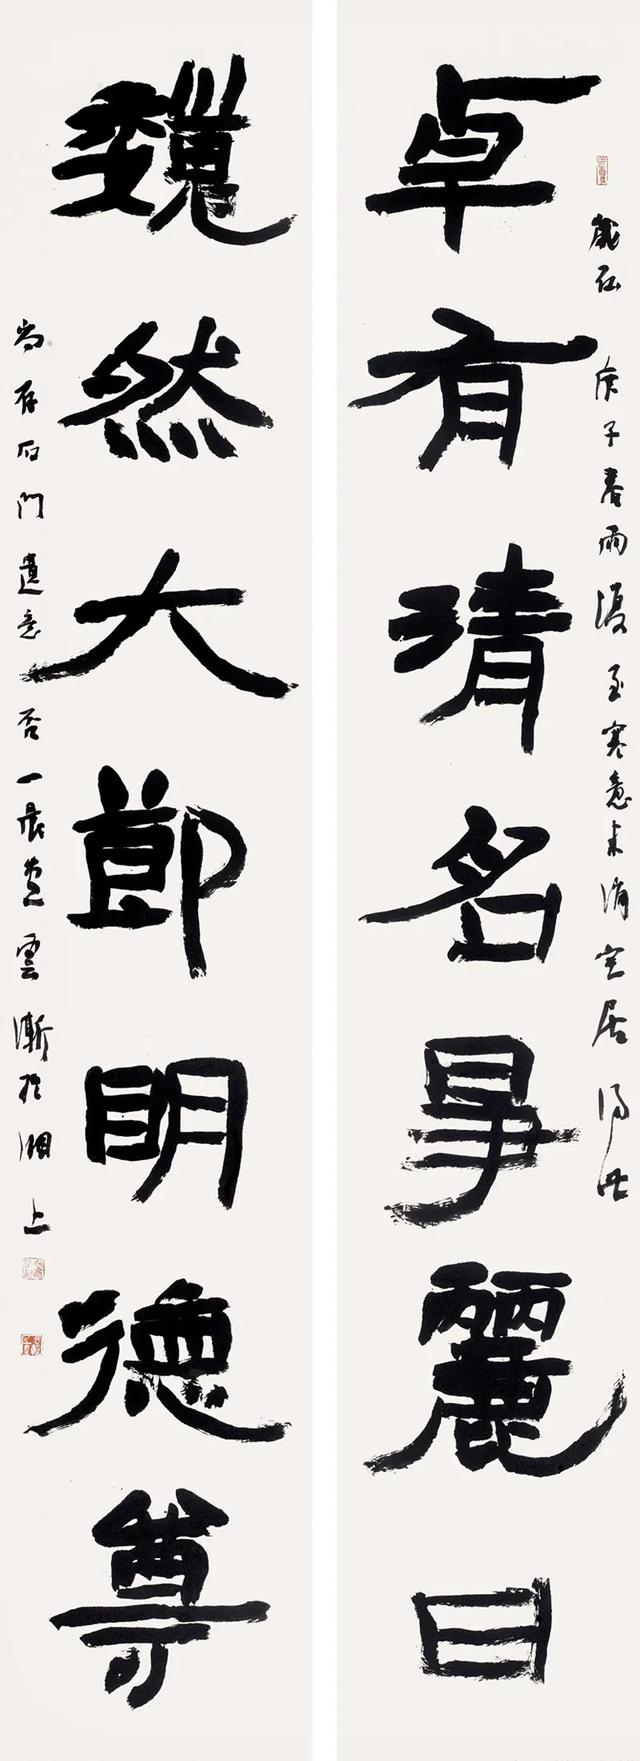 卓有清名事麗日
巍然大節明德尊
庚子春雨復至寒意未消室居得此
尚存石門遺意否一晨並雲漸於湘上